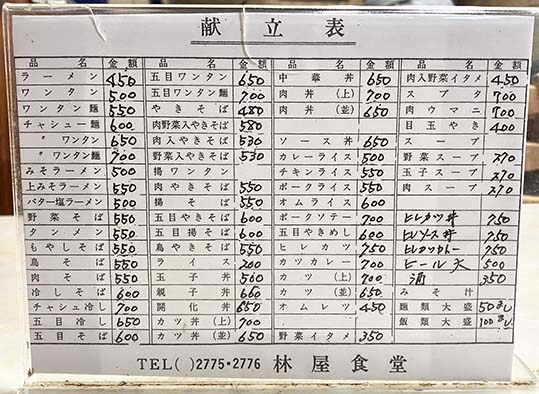 献立表
品名 金額 品名 金額 品名 金額 品名 金額
ラーメン 450 五目ワンタン 650 中華丼 650 肉入野菜イタメ 450
ワンタン 500 五目ワンタン麺 700 肉丼(上) 700 スブタ 700
ワンタン麺 550 やきそば 480 肉丼(並) 650 肉ウマニ 700
チャシュー麺 600 肉野菜入やきそば 580 目玉やき 400
〃ワンタン 650 肉入やきそば 530 ソース丼 650 スープ
〃ワンタン麺 700 野菜入やきそば 530 カレーライス 500 野菜スープ 270
みそラーメン 500 揚ワンタン チキンライス 550 玉子スープ 270
上みそラーメン 550 肉やきそば 550 ポークライス 550 肉スープ 270
バター塩ラーメン 500 揚そば 550 オムライス 600
野菜そば 550 五目やきそば 600 ポークソテー 700 ヒレカツ丼 750
タンメン 550 五目揚そば 600 五目やきめし 600 ヒレソース丼 750
もやしそば 550 鳥やきそば 550 ヒレカツ 750 ヒレカツカレー 750
鳥そば 550 ライス 200 カツカレー 700 ビール大 500
肉そば 550 玉子丼 560 カツ(上) 700 酒 350
冷しそば 600 親子丼 660 カツ(並) 650 みそ汁
チャシュ冷し 700 開化丼 650 オムレツ 450 麺類大盛 50まし
五目冷し 650 カツ丼(上) 700 飯類大盛 100まし
五目そば 600 カツ丼(並) 650 野菜イタメ 350
TEL( )2775・2776 林屋食堂